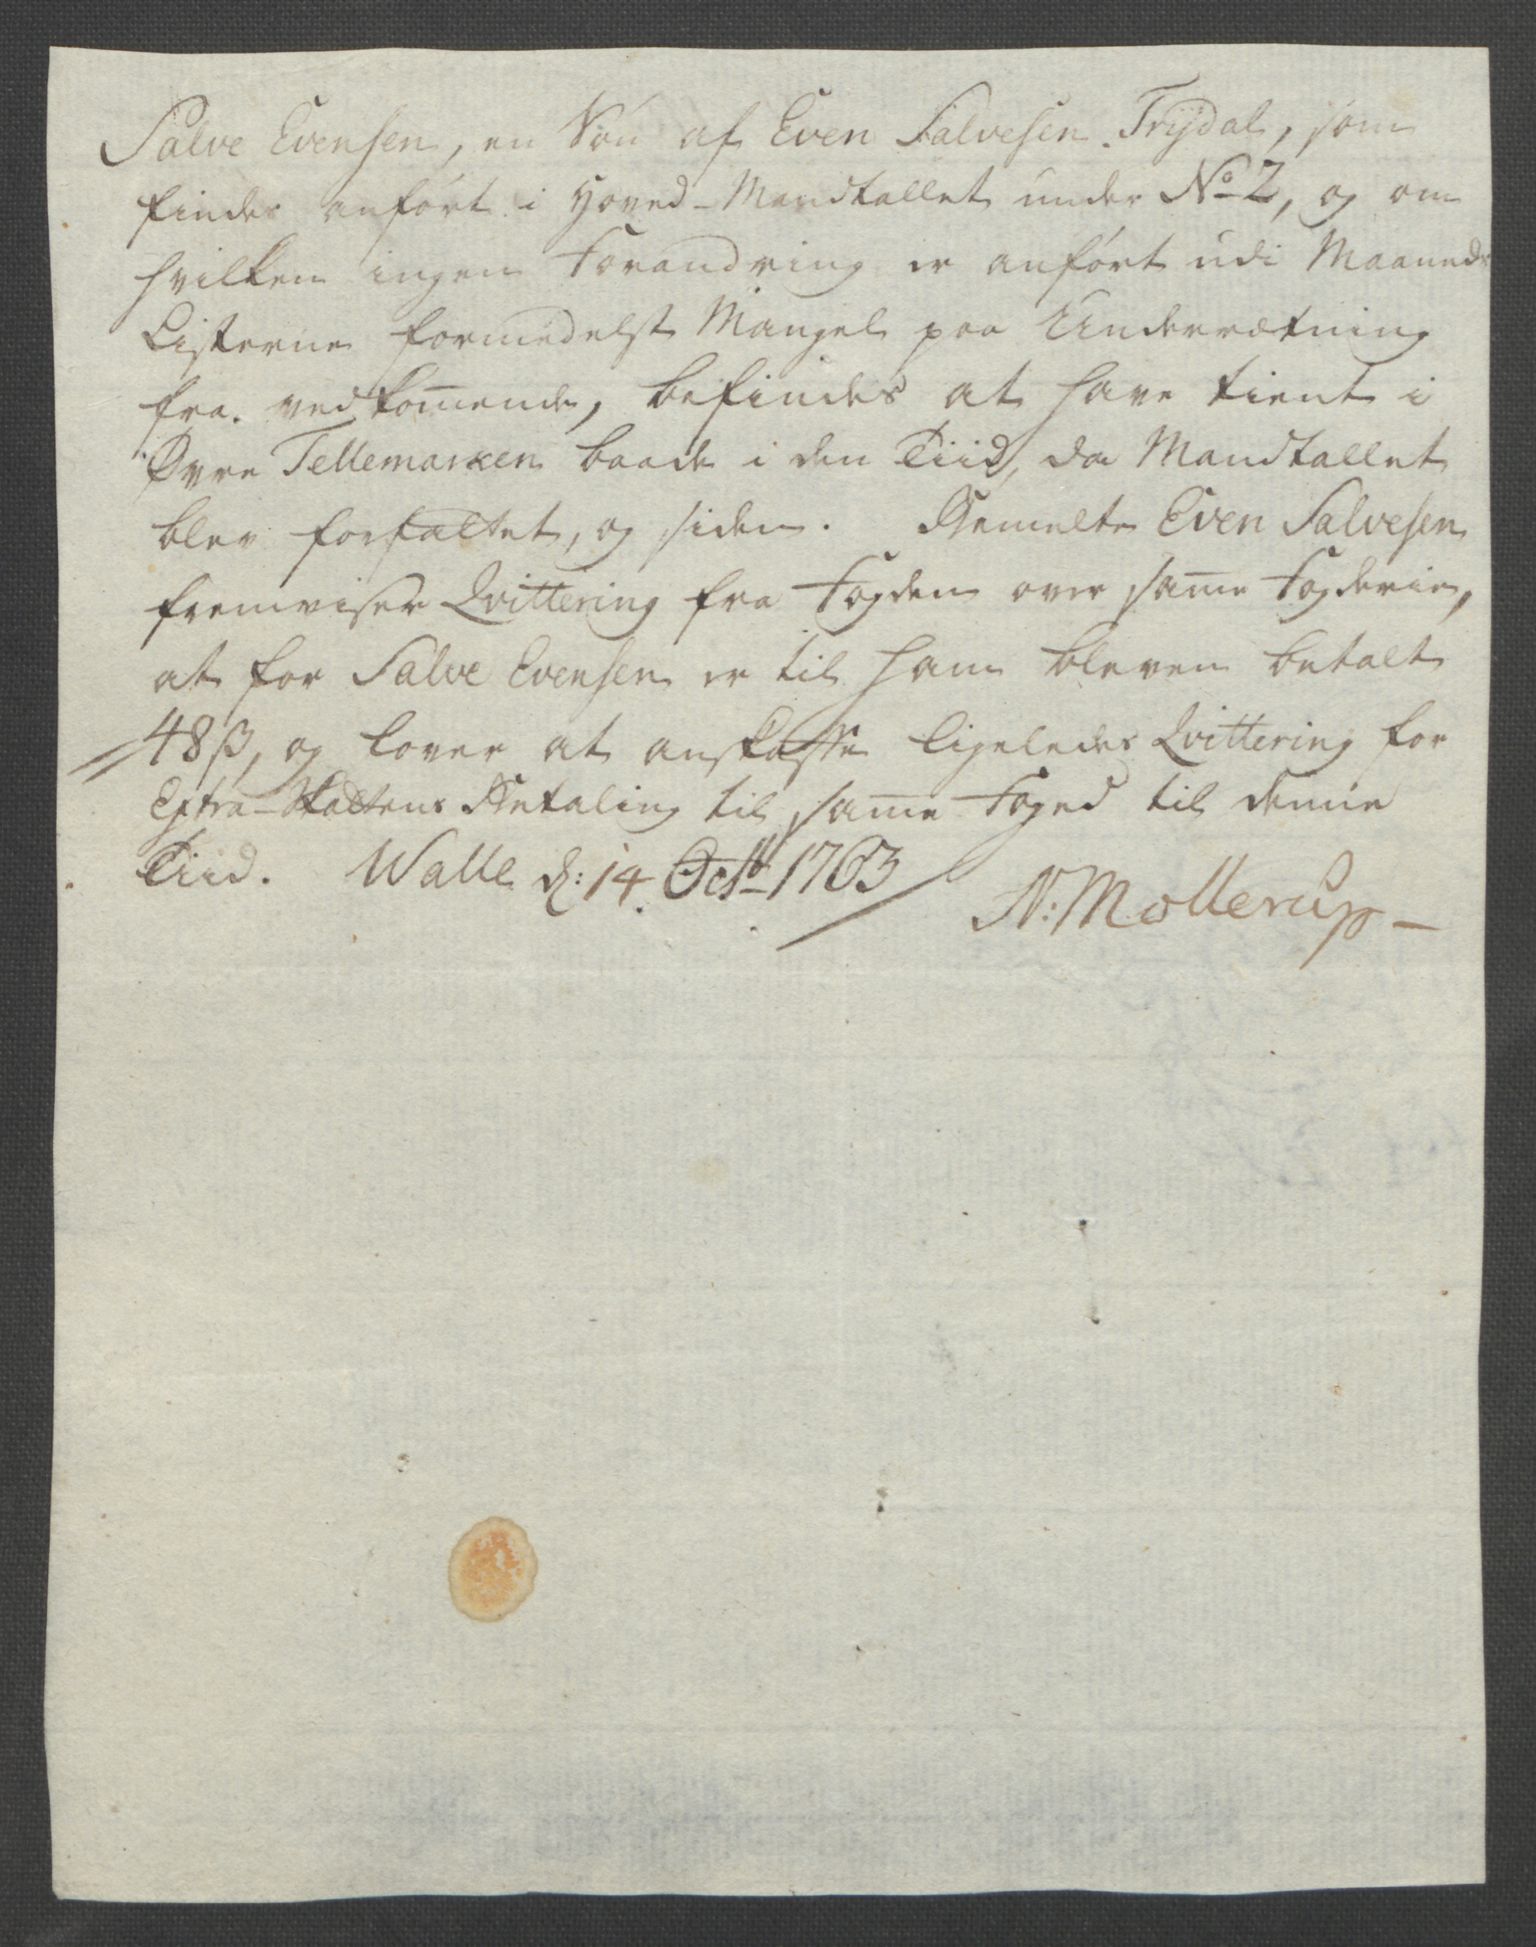 Salve Evensen, en Søn af Even Salvesen Trÿdal, som
findes anført i Hoved-Mandtallet under No 2, og om
hvilken ingen Forandring er anført udi Maaneds
Listerne formedelst Mangel paa Underretning
fra vedkom̅ende, befindes at have tient i
Øvre Tellemarken baade i den Tiid, da Mandtallet
blev forfattet, og siden. Bemelte Even Salvesen
fremviser Qvittering fra Fogden over sam̅e Fogderie,
at for Salve Evensen er til ham bleven betalt
48 β, og lover at anskaffe ligeledes Qvittering for
Extra-Skattens Betaling til sam̅e Foged til denne
Tiid. Walle d: 14 Octb 1763
N: Mollerup